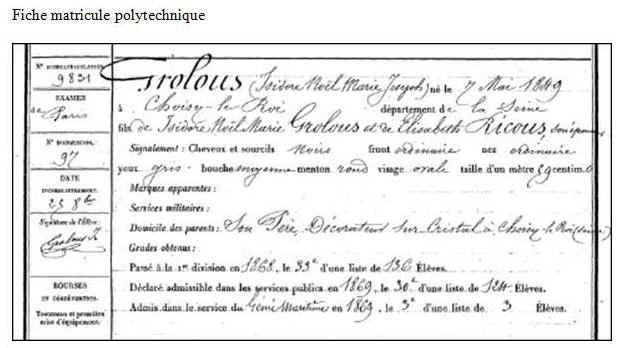 Fiche matricule polytechnique
N° D'IMMATRICULATION
9831
EXAMEN
de Paris
N° D'ADMISSION.
97
DATE
D'ENREGISTREMENT.
25 8bre
Signature de l'Élève:
Grolous J
BOURSES
ET DÉGRÈVEMENTS.
Trousseau et première
mise d'équipement.
Grolous (Isidore Noël Marie Joseph) né le 7 Mai 1849
à Choisy-le Roi département de la Seine
fils de Isidore Noël Marie Grolous et de Elisabeth Ricous, son épouse
Signalement: Cheveux et sourcils noirs front ordinaire nez ordinaire
yeux gris bouche moyenne menton rond visage ovale taille d'un mètre 59 centim. 0
Marques apparentes:
Services militaires:
Domicile des parents: Son Père, Décorateur sur Cristal à Choisy-le Roi (Seine)
Grades obtenus:
Passé à la 1re division en 1868, le 33e d'une liste de 136 Élèves.
Déclaré admissible dans les services publics en 1869, le 30e d'une liste de 124 Élèves.
Admis dans le service du Génie Maritime en 1869, le 3e d'une liste de 3 Élèves.